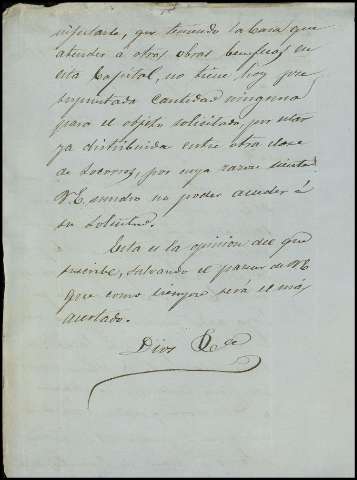 que teniendo la Casa que
atender á otras obras beneficas en
esta Capital, no tiene hoy pre
supuestada cantidad ninguna
para el objeto solicitado, por estar
ya distribuida entre otra clase
de Socorros, por cuya razon
V.E. no poder acceder á
su solicitud.
Esta es la opinion del que
suscribe, salvando el parecer de V.E
que como siempre será el más
acertado.
Dios &ce